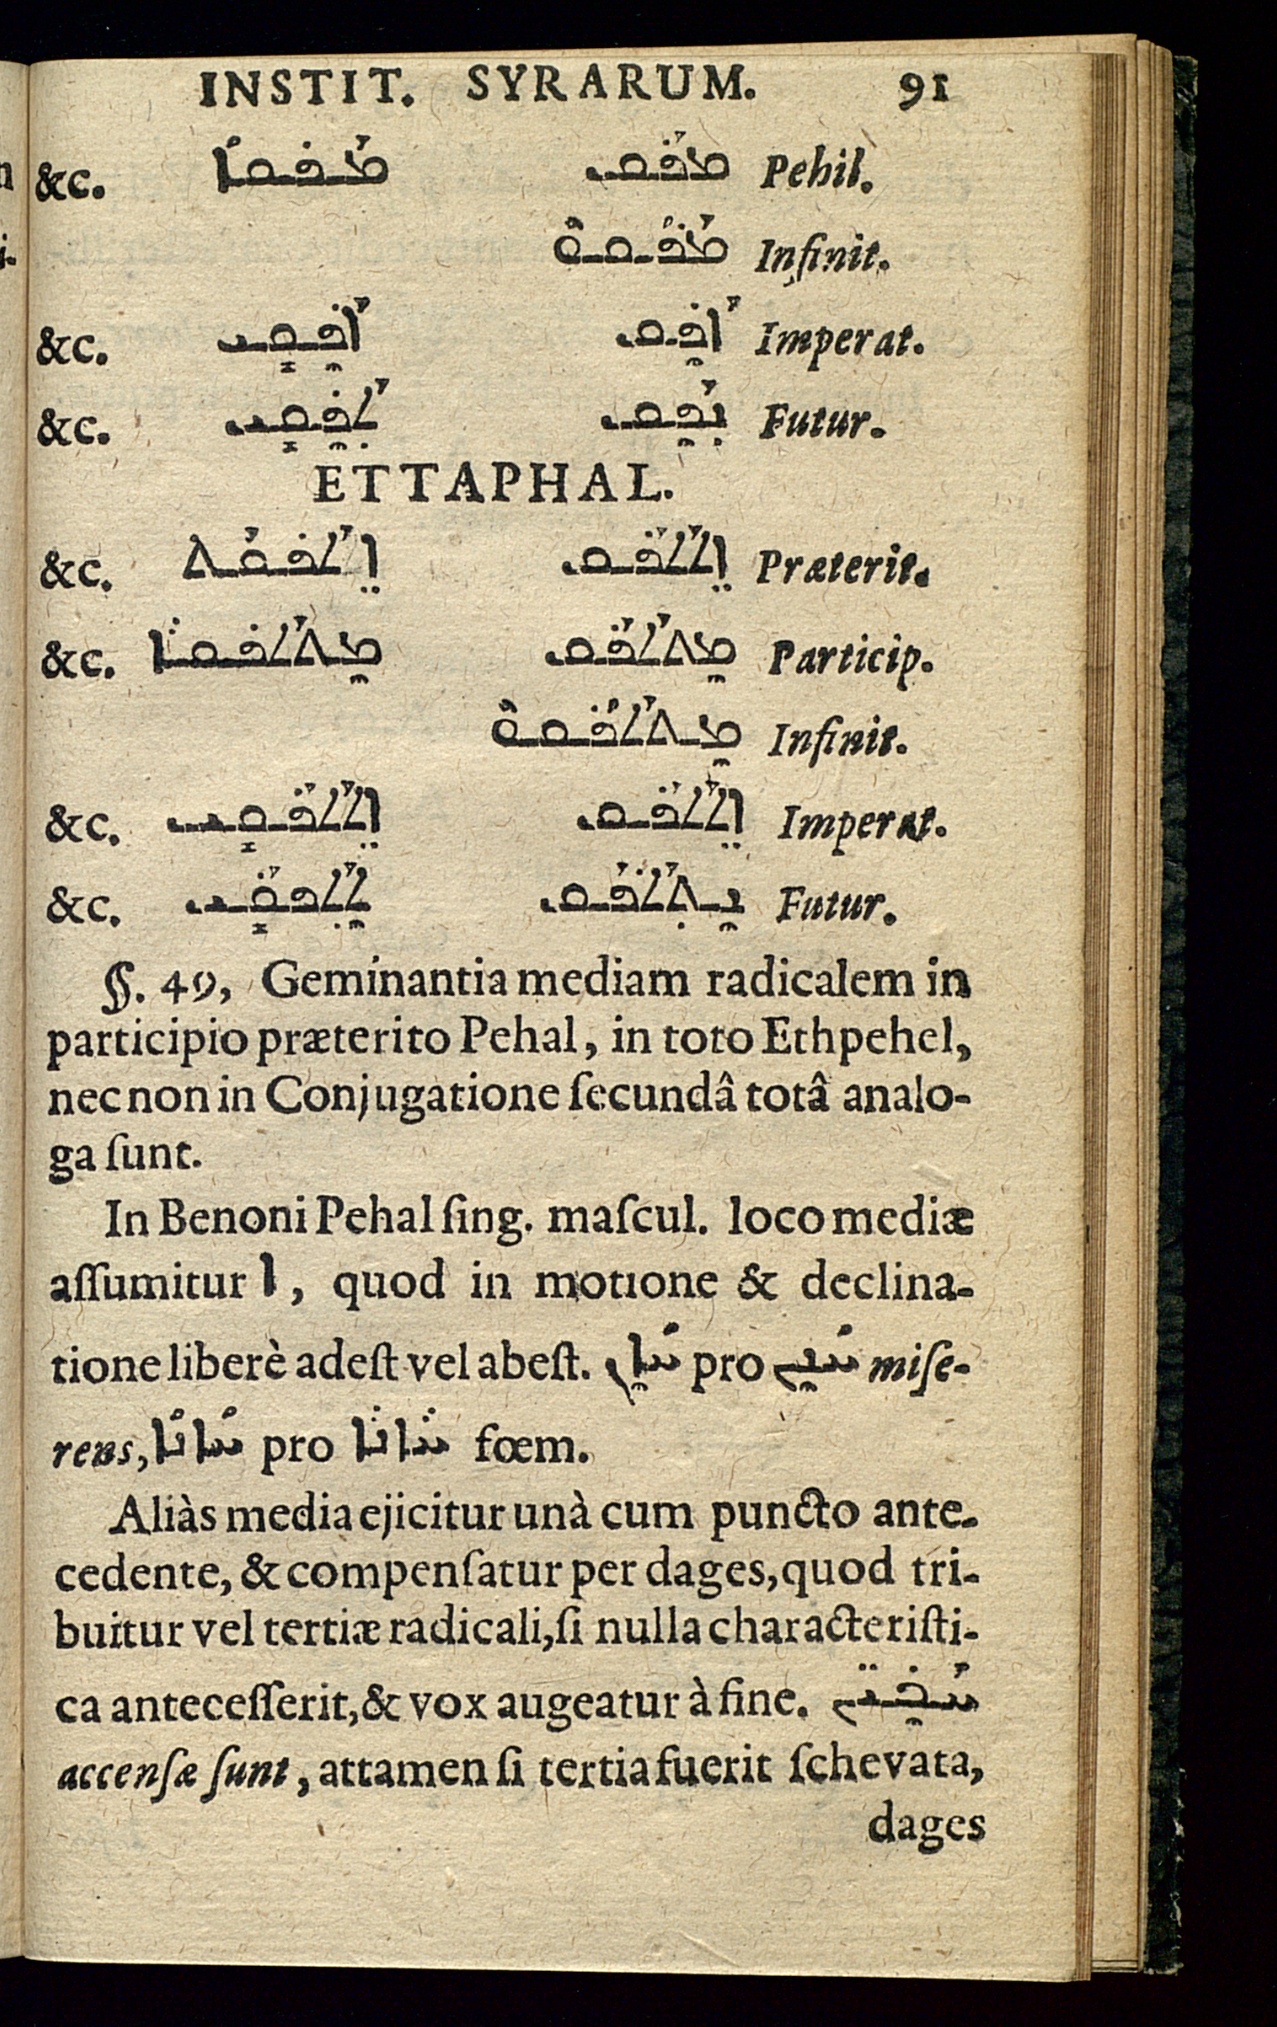 INSTIT. SYRARUM. 91
&c. ܡܦܩܐ ܡܦܩ Pehil.
ܡܦܩܘ Infinit.
&c. ܐܦܩܝ ܐܦܩ Imperat.
&c. ܢܦܩ Futur.
ETTAPHAL.
&c. Præterit.
&c. Particip.
Infinit.
&c. Imperat.
&c. Futur.
§. 49, Geminantia mediam radicalem in
participio præterito Pehal, in toto Ethpehel,
nec non in Conjugatione ſecundâ totâ analo-
ga ſunt.
In Benoni Pehal ſing. maſcul. loco mediæ
aſſumitur ܐ, quod in motione & declina-
tione liberè adeſt vel abeſt. ܚܐܢ pro miſe-
rens, ܚܐܢܐ pro ܚܐܢܐ fœm.
Aliàs media ejicitur unà cum puncto ante-
cedente, & compenſatur per dages, quod tri-
buitur vel tertiæ radicali, ſi nulla characteriſti-
ca anteceſſerit, & vox augeatur à fine.
accenſæ ſunt, attamen ſi tertia fuerit ſchevata,
dages